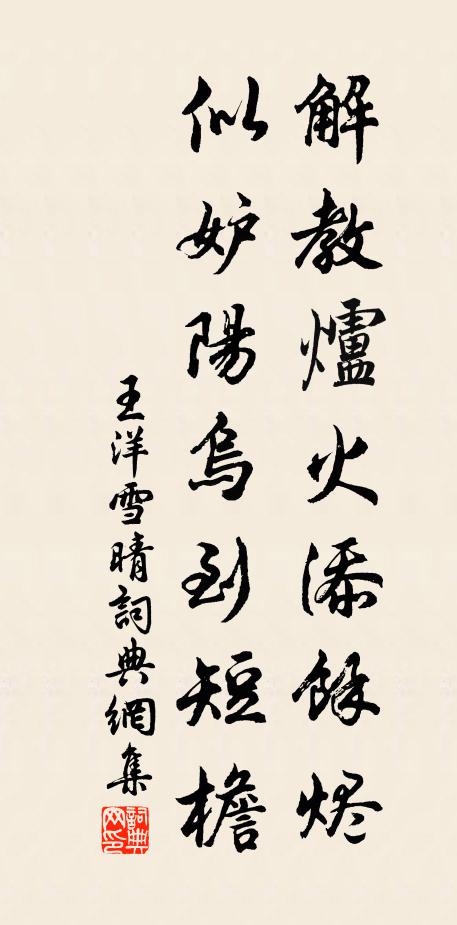 解教爐火添餘烬
似妒陽烏到短檐
王洋雪晴詞典網集
詞典网印